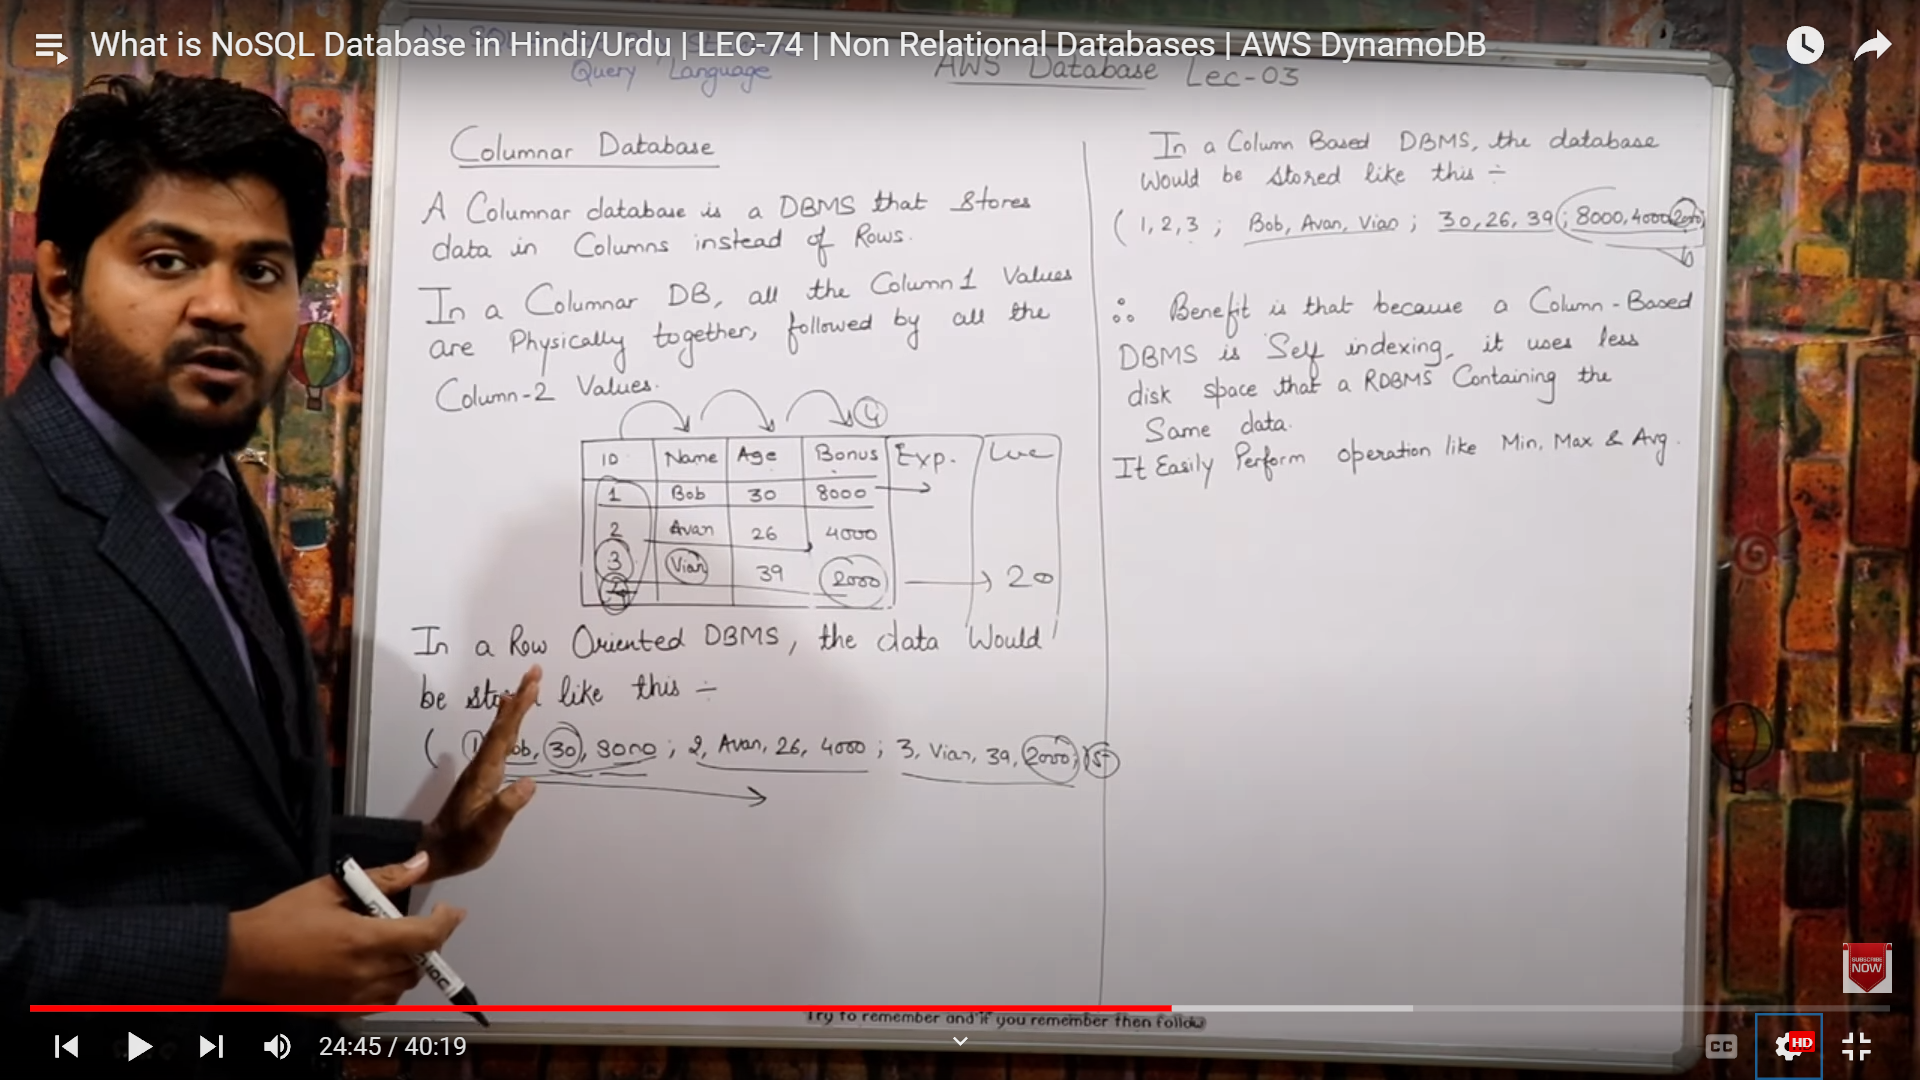 What is NoSQL Database in Hindi/Urdu | LEC-74 | Non Relational Databases | AWS DynamoDB
Query Language
AWS Database Lec-03
Columnar Database
A Columnar database is a DBMS that stores
data in Columns instead of Rows.
In a Columnar DB, all the Column 1 Values
are Physically together, followed by all the
Column-2 Values.
4
ID Name Age Bonus Exp.
1 Bob 30 8000
2 Avan 26 4000
3 Vian 39 2000 20
4
In a Row Oriented DBMS, the data Would
be like this ÷
( 1 30, 8000 ; 2, Avan, 26, 4000 ; 3, Vian, 39, 2000;
In a Column Based DBMS, the database
Would be stored like this ÷
( 1, 2, 3 ; Bob, Avan, Vian ; 30, 26, 39 ; 8000, 4000, 2000;
∴ Benefit is that because a Column-Based
DBMS is Self indexing, it uses less
disk space that a RDBMS Containing the
Same data.
It Easily Perform operation like Min, Max & Avg.
SUBSCRIBE
NOW
Try to remember and if you remember then follow
24:45 / 40:19
CC
HD